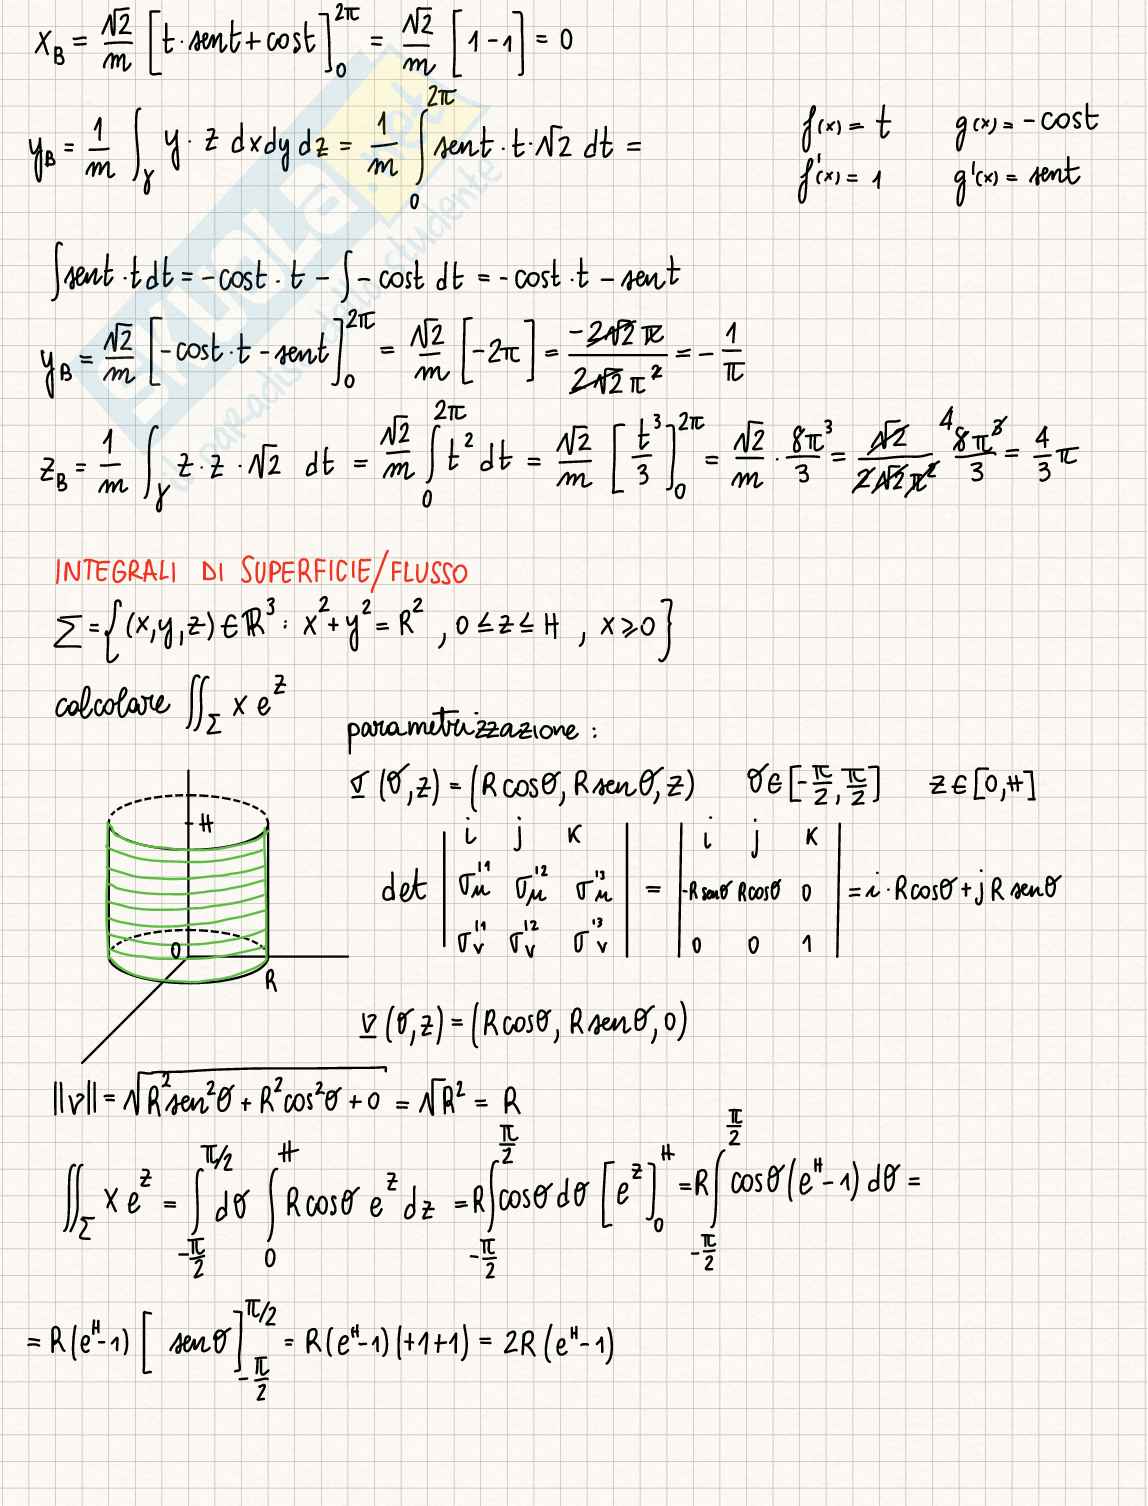 x_B = √2/m [t·sent + cost]₀^2π = √2/m [1-1] = 0
y_B = 1/m ∫_γ y · z dxdydz = 1/m ∫₀^2π sent · t · √2 dt =
f(x) = t g(x) = - cost
f'(x) = 1 g'(x) = sent
∫sent · t dt = - cost · t - ∫ - cost dt = - cost · t - sent
y_B = √2/m [-cost·t - sent]₀^2π = √2/m [-2π] = -2√2π / 2√2π² = - 1/π
z_B = 1/m ∫_γ z · z · √2 dt = √2/m ∫₀^2π t² dt = √2/m [t³/3]₀^2π = √2/m · 8π³/3 = √2 / 2√2π² 4 8π³/3 = 4/3 π
SKUOLA.net
il paradiso dello studente
INTEGRALI DI SUPERFICIE/FLUSSO
Σ = {(x,y,z) ∈ ℝ³ : x² + y² = R² , 0 ≤ z ≤ H , x ≥ 0}
calcolare ∬_Σ x e^z
parametrizzazione :
σ (θ,z) = (R cosθ, R senθ, z) θ ∈ [-π/2, π/2] z ∈ [0,H]
H
O
R
det | i j k | = | i j k |
| σ'¹_u σ'²_u σ'³_u | | -R senθ R cosθ 0 | = i · R cosθ + j R senθ
| σ'¹_v σ'²_v σ'³_v | | 0 0 1 |
v (θ,z) = (R cosθ, R senθ, 0)
||v|| = √(R² sen²θ + R² cos²θ + 0) = √R² = R
∬_Σ x e^z = ∫_{-π/2}^{π/2} dθ ∫₀^H R cosθ e^z dz = R ∫_{-π/2}^{π/2} cosθ dθ [e^z]₀^H = R ∫_{-π/2}^{π/2} cosθ (e^H - 1) dθ =
= R (e^H - 1) [ senθ]_{-π/2}^{π/2} = R (e^H - 1) (+1+1) = 2R (e^H - 1)